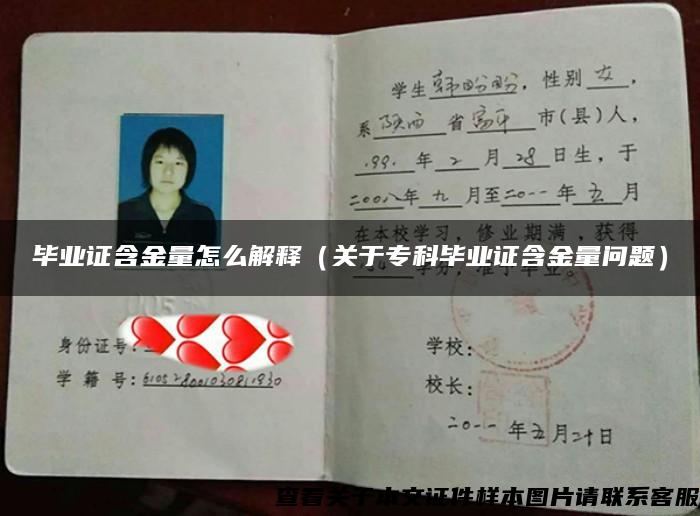 身份证号:
学籍号:6105280010308111930
学生韩盼盼,性别女,
系陕西省富平市(县)人,
1991年2月28日生,于
二00八年九月至二0一一年五月
在本校学习,修业期满,获得
学分,准予毕业。
毕业证含金量怎么解释(关于专科毕业证含金量问题)
学校:
校长:
二0一一年五月二十日
查看关于本文证件样本图片请联系客服